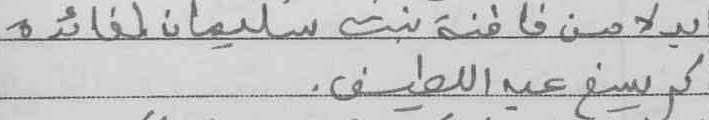 بدلا من فاطنة بنت سليمان لفائدة
كم يسف عبد اللطيف.